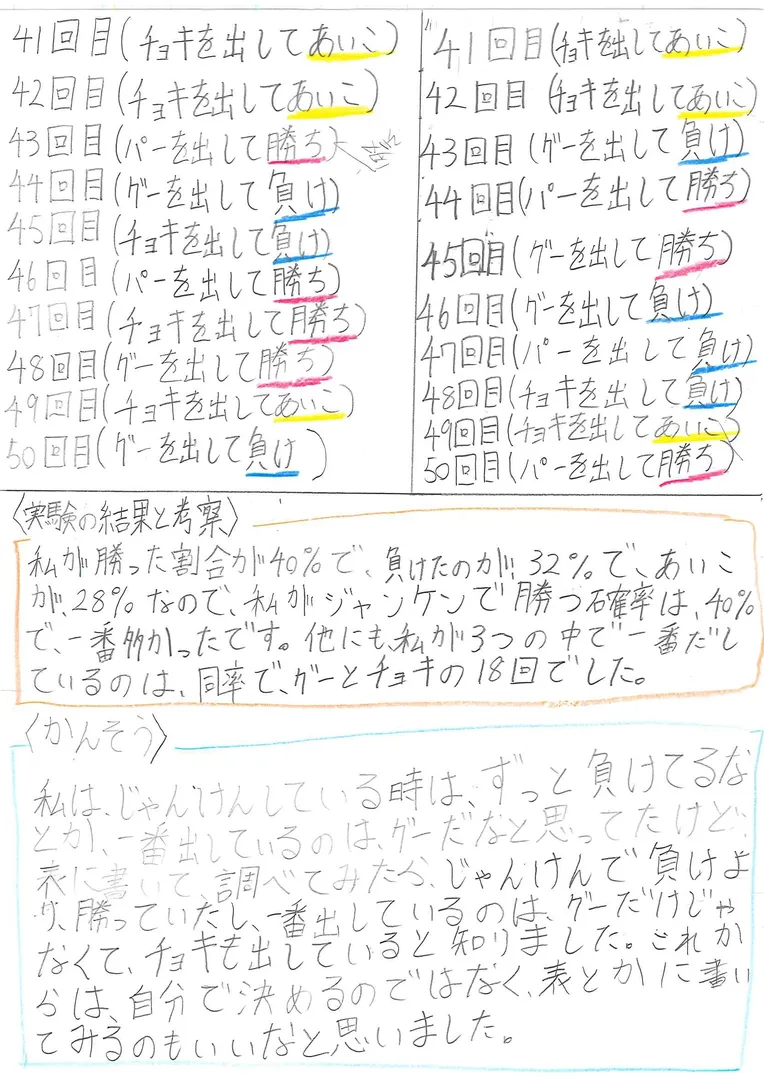 41回目(チョキを出してあいこ)
42回目(チョキを出してあいこ)
43回目(パーを出して勝ち)
44回目(グーを出して負け)
45回目(チョキを出して負け)
46回目(パーを出して勝ち)
47回目(チョキを出して勝ち)
48回目(グーを出して勝ち)
49回目(チョキを出してあいこ)
50回目(グーを出して負け)
41回目(チョキを出してあいこ)
42回目(チョキを出してあいこ)
43回目(グーを出して負け)
44回目(パーを出して勝ち)
45回目(グーを出して勝ち)
46回目(グーを出して負け)
47回目(パーを出して負け)
48回目(チョキを出して負け)
49回目(チョキを出してあいこ)
50回目(パーを出して勝ち)
〈実験の結果と考察〉
私が勝った割合が40%で、負けたのが、32%で、あいこ
が、28%なので、私がジャンケンで勝つ確率は、40%
で、一番多かったです。他にも、私が3つの中で一番だし
ているのは、同率で、グーとチョキの18回でした。
〈かんそう〉
私は、じゃんけんしている時は、ずっと負けてるな
とか、一番出しているのは、グーだなと思ってたけど、
表に書いて、調べてみたら、じゃんけんで負けよ
り、勝っていたし、一番出しているのは、グーだけじゃ
なくて、チョキも出していると知りました。これか
らは、自分で決めるのではなく、表とかに書い
てみるのもいいなと思いました。